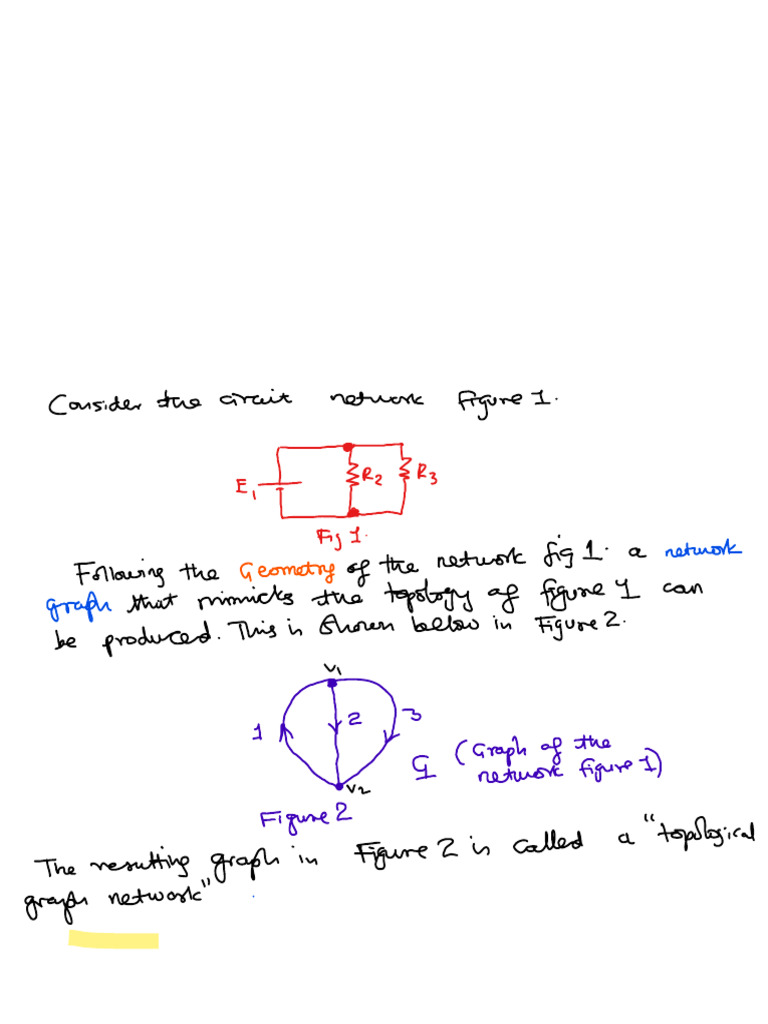 Consider the circuit network figure 1.
E1 R2 R3
Fig 1.
Following the Geometry of the network fig 1. a network
graph that mimicks the topology of figure 1 can
be produced. This is shown bellow in Figure 2.
V1
1 2 3
G (Graph of the
network figure 1)
V2
Figure 2
The resulting graph in Figure 2 is called a "topological
graph network"